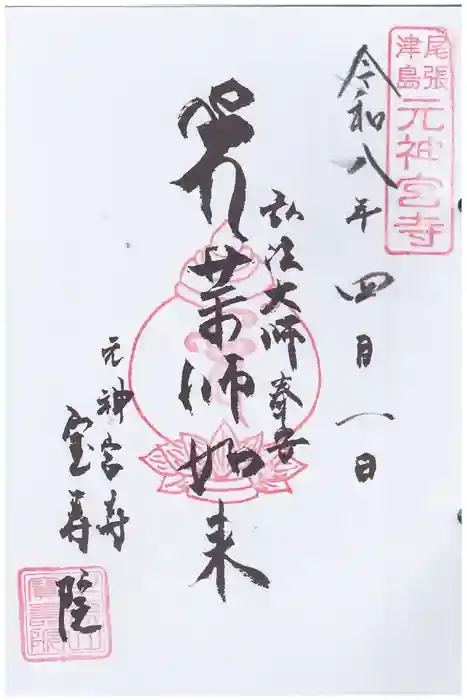 尾張
津島
元神宮寺
令和八年四月一日
弘法大師
薬師如来
元神宮寺
宝寿院